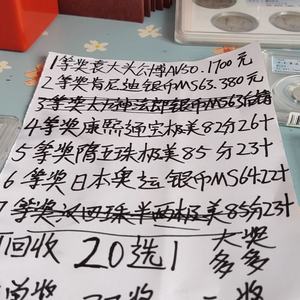 1等奖袁大头公博AV50.1700元
2等奖肯尼迪银币MS63.380元
3等奖
4等奖康熙通宝极美82分26十
5等奖隋五珠极美85分23十
6等奖日本奥运银币MS64.22十
7等奖汉四珠半两极美85分23十
回收 20选1 大奖多多